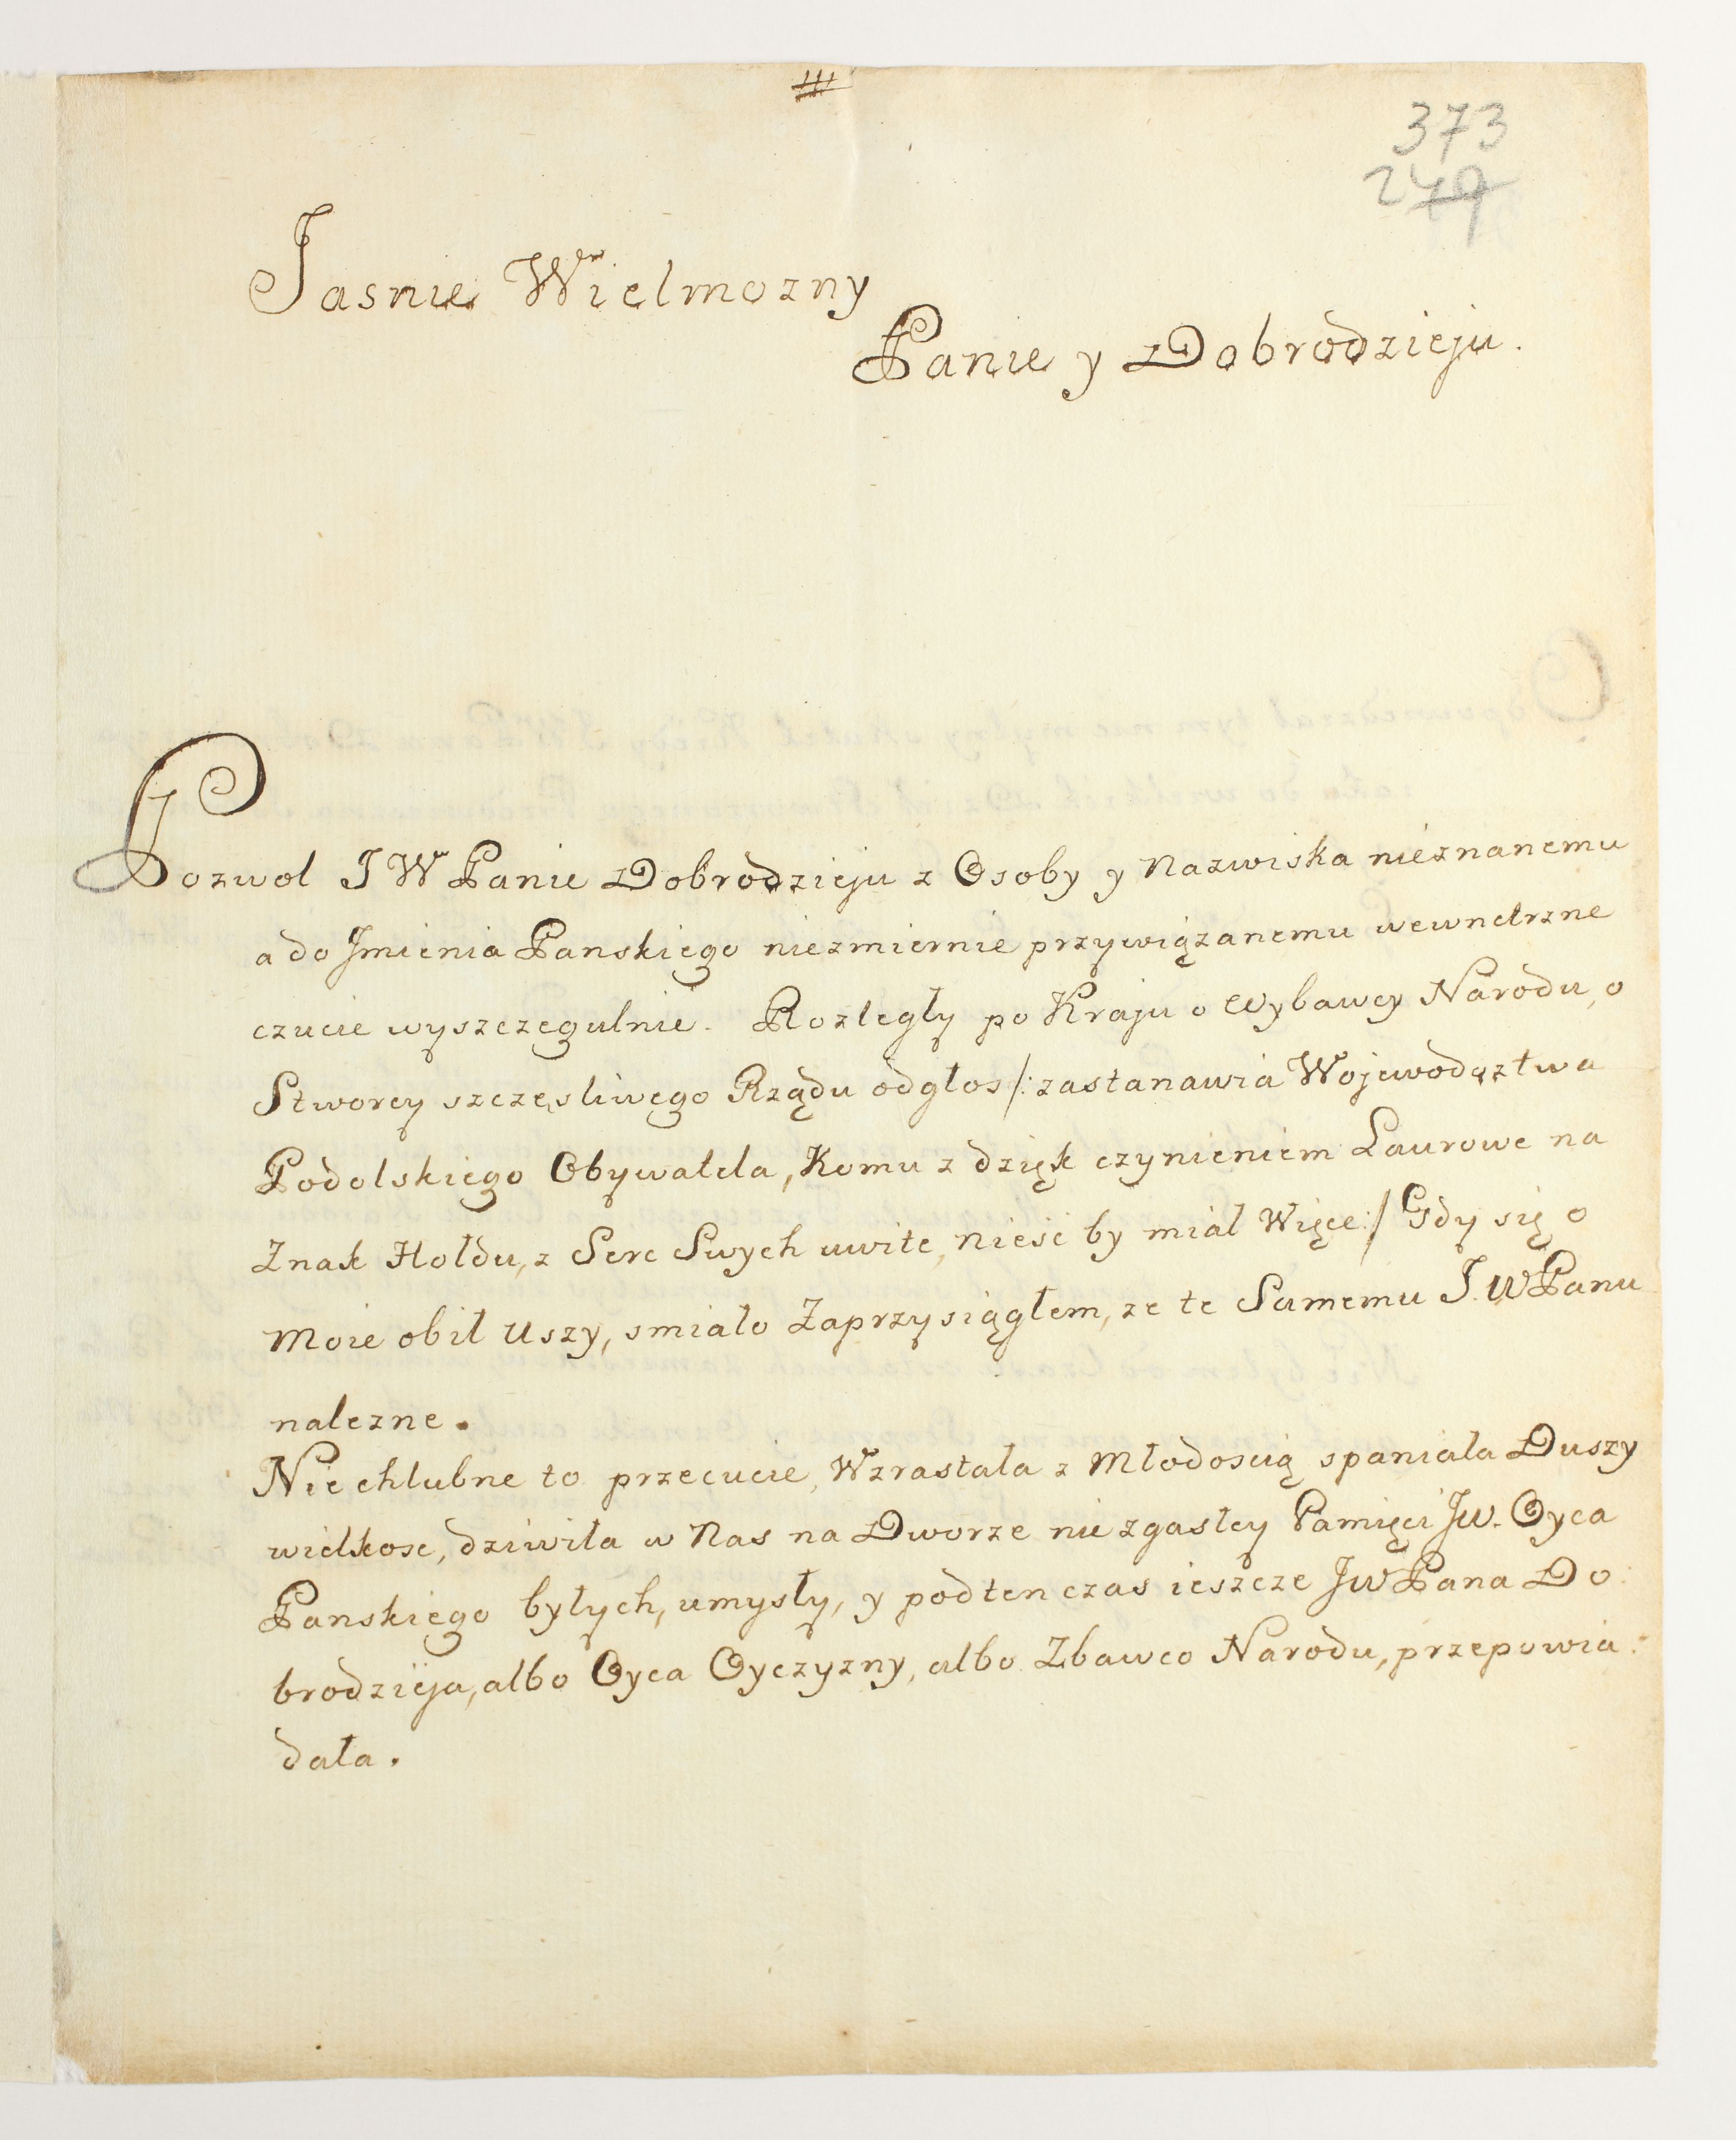 373
249
Jasnie Wielmozny
Panie y Dobrodzieju.
Pozwol J W Panie Dobrodzieju z Osoby y Nazwiska nieznanemu
a do Jmienia Panskiego niezmiernie przywiązanemu wewnetrzne
czucie wyszczegulnie. Rozległy po Kraju o Wybawcy Narodu, o
Stworcy szczęsliwego Rządu odgłos /: zastanawia Wojewodąztwa
Podolskiego Obywatela, Komu z dzięk czynieniem Laurowe na
Znak Hołdu, z Serc Swych uwite, niesć by miał Więce :/ Gdy się o
Moie obił Uszy, smiało Zaprzysiągłem, ze te Samemu J. W Panu
nalezne.
Nie chlubne to przecucie, Wzrastała z Młodoscią spaniała Duszy
wielkosc, dziwiła w Nas na Dworze nie zgasłey Pamięci Jw. Oyca
Panskiego byłych, umysły, y podten czas ieszcze JW Pana Do:
brodzieja, albo Oyca Oyczyzny, albo Zbawco Narodu, przepowia:
dała.